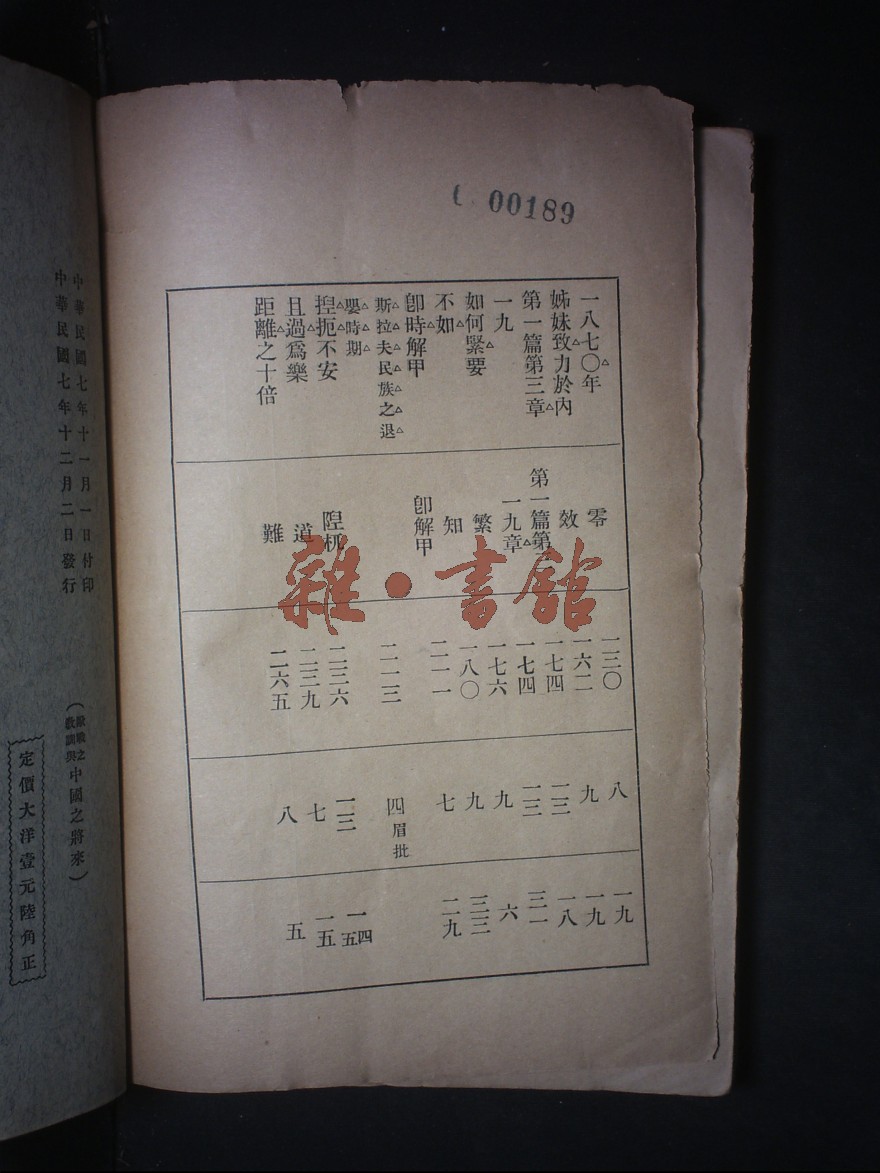 00189
一八七〇年
姊妹致力於內
第一篇第三章
一九
如何緊要
不如
卽時解甲
斯拉夫民族之退
嬰時期
揑扼不安
且過爲樂
距離之十倍
零
效
第一篇第
一九章
繁
知
卽解甲
隉杌
道
難
一三〇
一六二
一七四
一七四
一七六
一八〇
二一一
二一三
二三六
二三九
二六五
八
九
一二
一三
九
九
七
四眉批
一三
七
八
一九
一九
一八
三一
六
三三
二九
一四
一五
一五
五
雜·書館
中華民國七年十一月一日付印
中華民國七年十二月二日發行
中國之將來)
定價大洋壹元陸角正